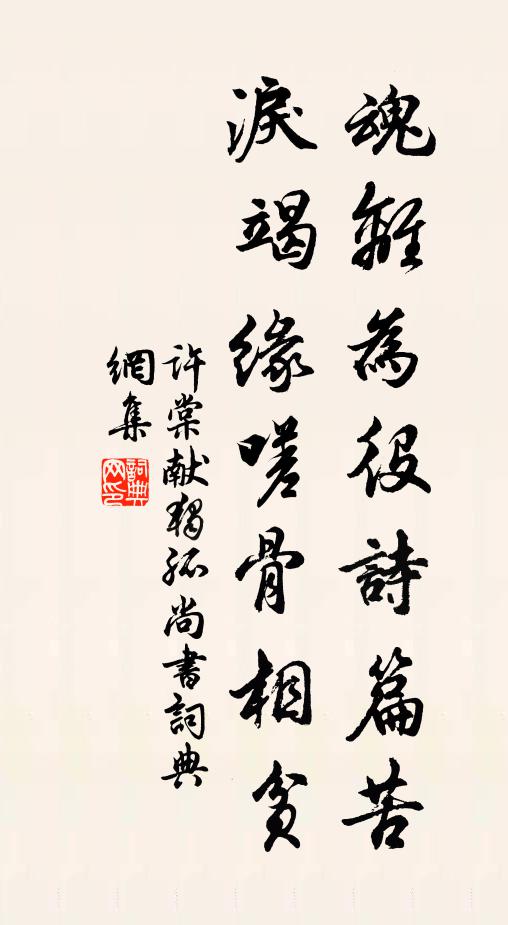 魂離為役詩篇苦
淚竭緣嗟骨相貧
許棠献獨孤尚書詞典
網集
詞典
网印